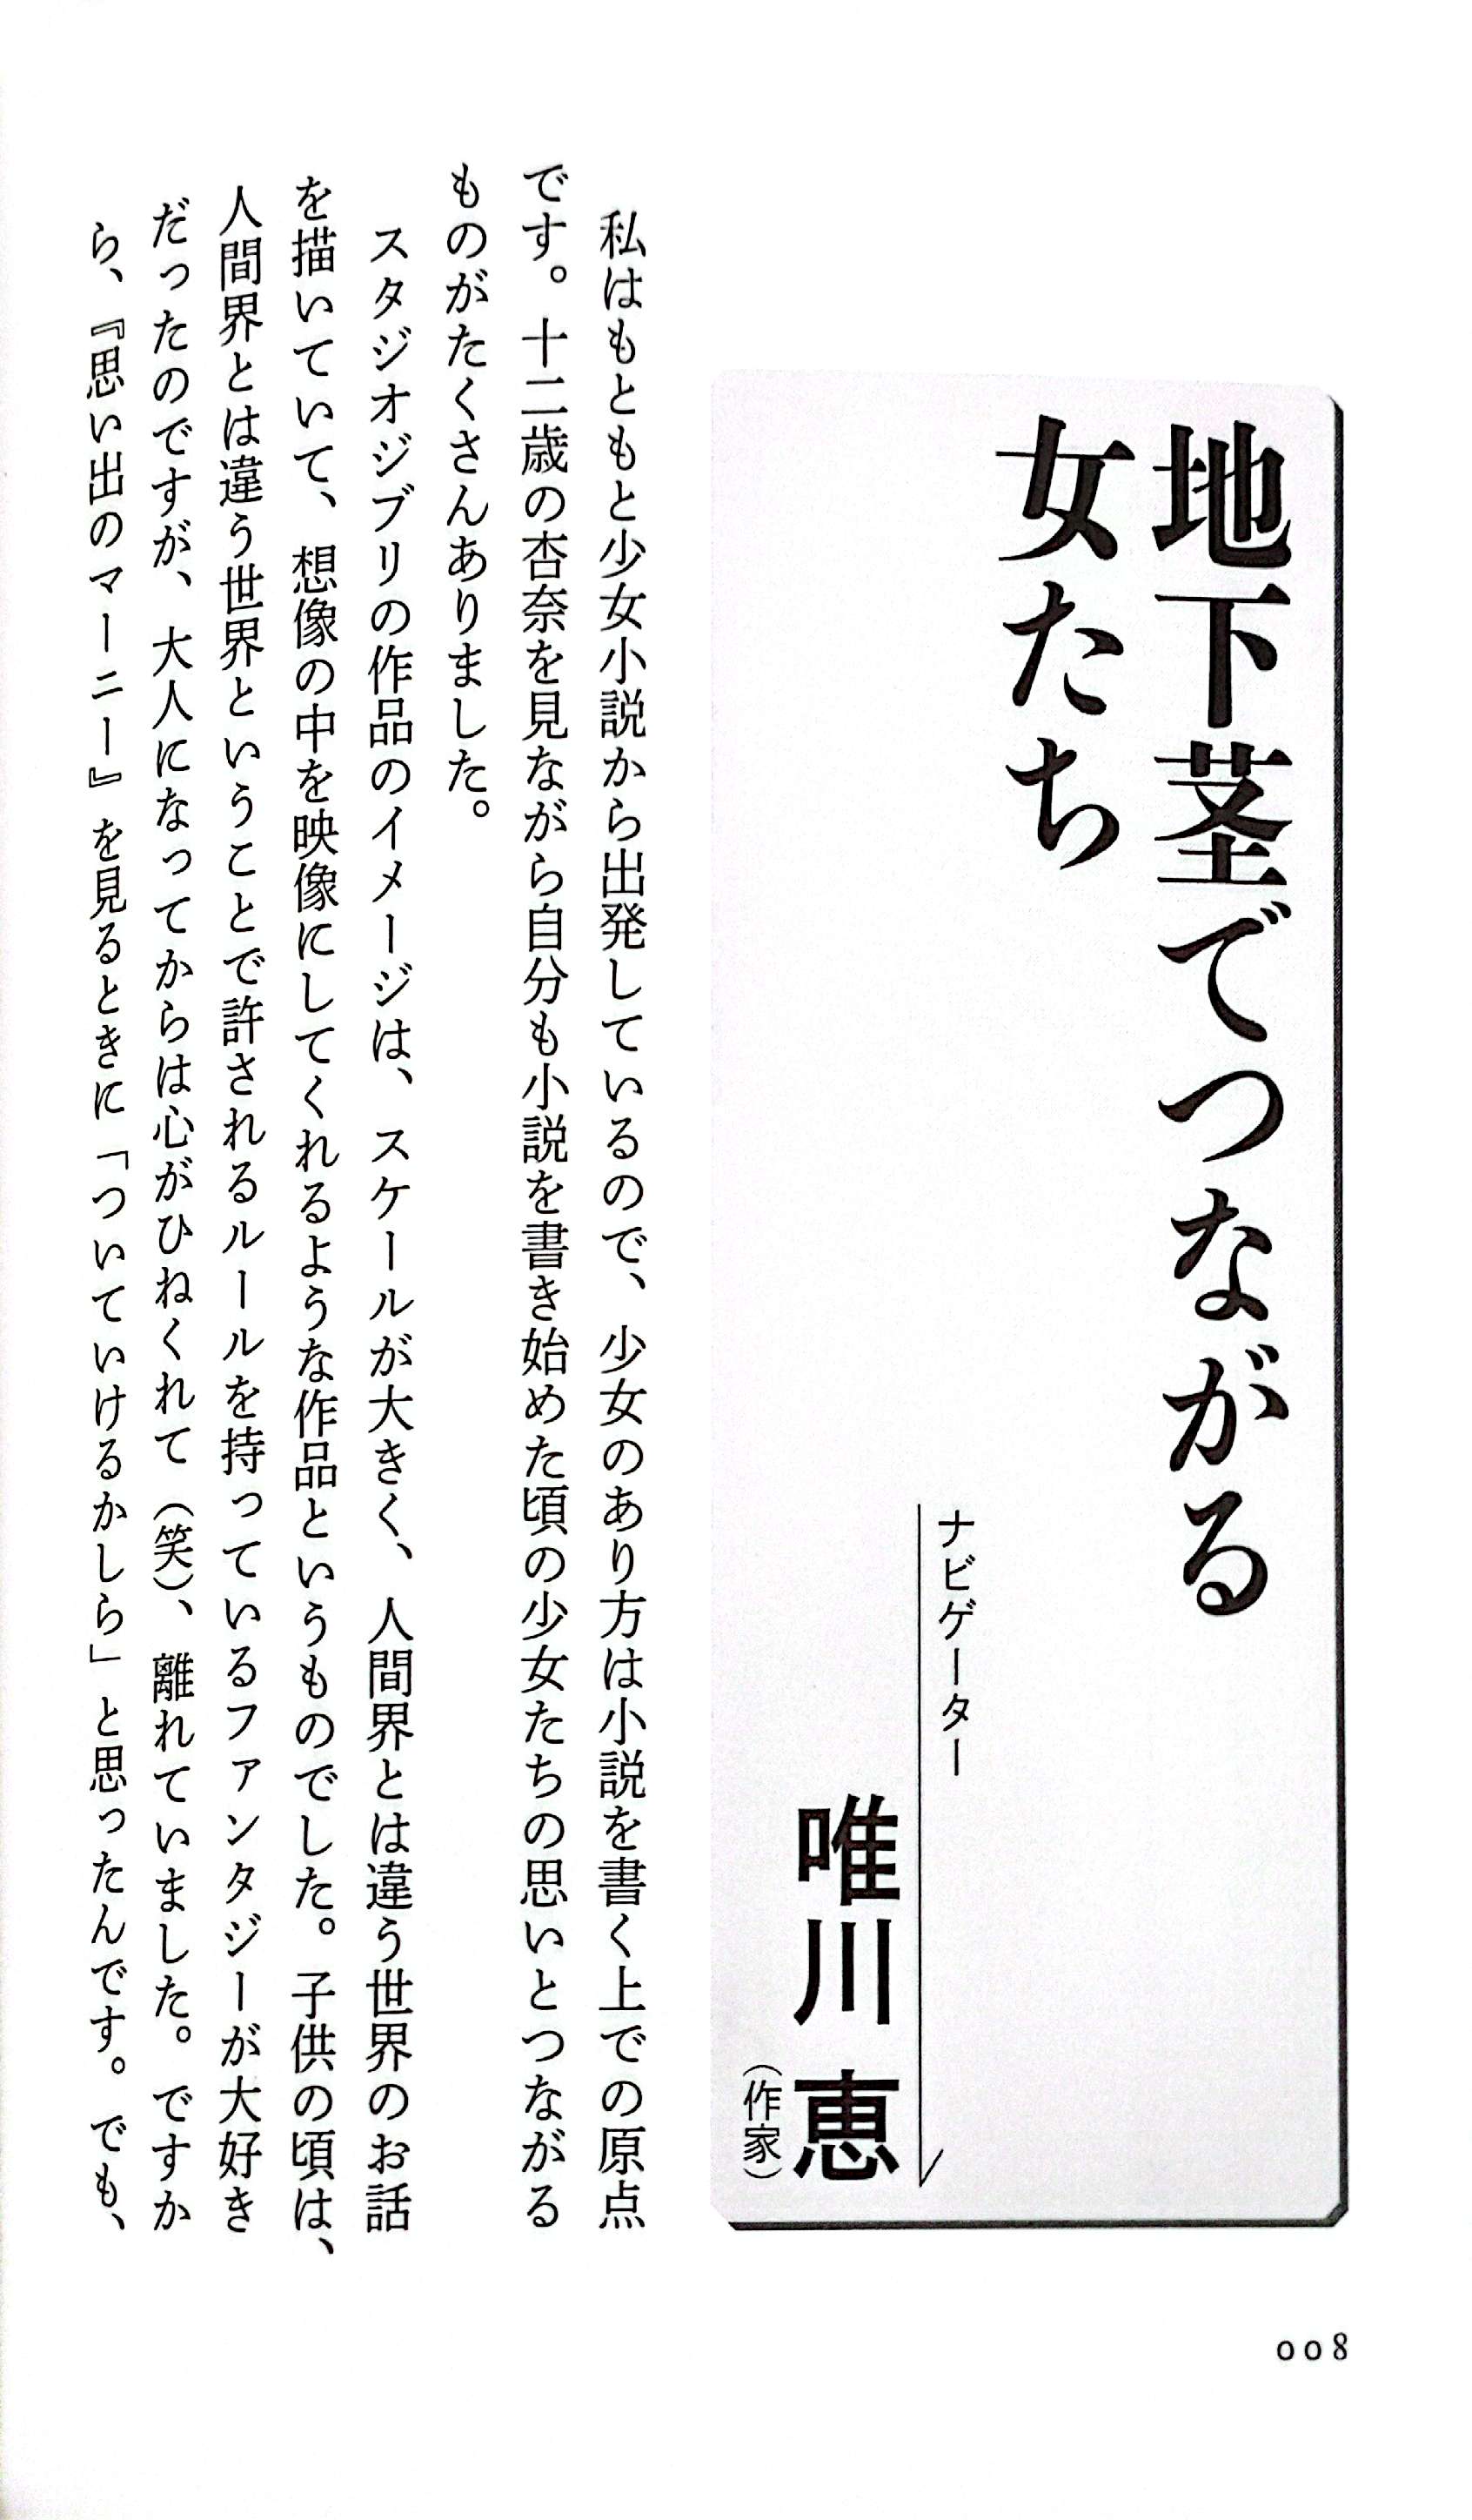 地下茎でつながる
女たち
ナビゲーター
唯川 恵
（作家）
私はもともと少女小説から出発しているので、少女のあり方は小説を書く上での原点
です。十二歳の杏奈を見ながら自分も小説を書き始めた頃の少女たちの思いとつながる
ものがたくさんありました。
スタジオジブリの作品のイメージは、スケールが大きく、人間界とは違う世界のお話
を描いていて、想像の中を映像にしてくれるような作品というものでした。子供の頃は、
人間界とは違う世界ということで許されるルールを持っているファンタジーが大好き
だったのですが、大人になってからは心がひねくれて（笑）、離れていました。ですか
ら、『思い出のマーニー』を見るときに「ついていけるかしら」と思ったんです。でも、
008